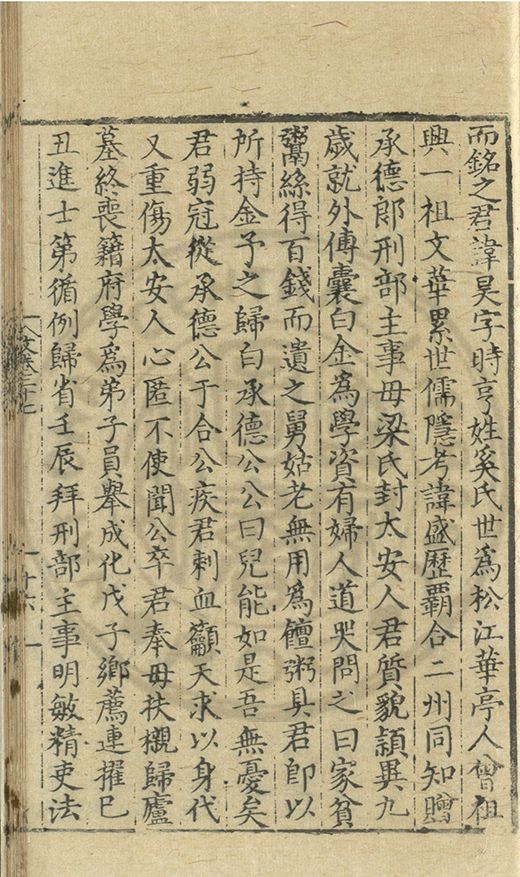 而銘之君諱昊字時亨姓奚氏世爲松江華亭人曾祖
興一祖文華累世儒隱考諱盛歷覇合二州同知贈
承德郎刑部主事母梁氏封太安人君質貌頴異九
歲就外傅囊白金爲學資有婦人道哭問之曰家貧
鬻絲得百錢而遺之舅姑老無用爲饘粥具君卽以
所持金予之歸白承德公公曰兒能如是吾無憂矣
君弱冠從承德公于合公疾君刺血籲天求以身代
又重傷太安人心匿不使聞公卒君奉母扶櫬歸廬
墓終喪籍府學爲弟子員舉成化戊子鄉薦連擢巳
丑進士第循例歸省壬辰拜刑部主事明敏精吏法
文卷二十七
十六